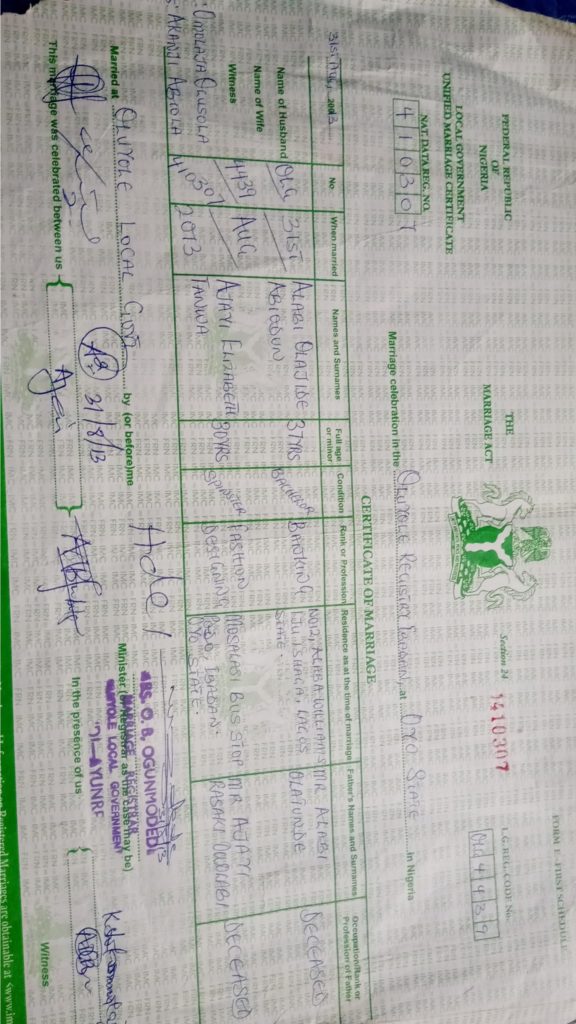 FORM E FIRST SCHEDULE
FEDERAL REPUBLIC
OF
NIGERIA
THE
MARRIAGE ACT
Section 24
1410307
LOCAL GOVERNMENT
UNIFIED MARRIAGE CERTIFICATE
NAT. DATA REG. NO.
410307
L.G. REG. CODE No.
Marriage celebration in the OLUYOLE REGISTRY at OYO STATE in Nigeria
CERTIFICATE OF MARRIAGE
31ST AUG, 2013
No. When married Names and Surnames Full age or minor Condition Rank or Profession Residence as at the time of marriage Father's Names and Surnames Occupation/Rank or Profession of Father
Name of Husband OLG 31ST ALABI OLAJIDE ABIODUN 37YRS BACHELOR BANKING NO12, ALABA WILLIAMS IJU ISHAGA, LAGOS STATE. MR ALABI OLATUNDE DECEASED
Name of Wife 4439 AUG AJAYI ELIZABETH TANWA 30YRS SPINSTER FASHION DESIGNING MOSALASI BUS STOP IBADAN. OYO STATE. MR AJAYI RASAKI DECEASED
Witness 410307 2013
: OMOLAJA OLUSOLA
: AKANJI ABIOLA
Married at OLUYOLE LOCAL GOVT. by (or before)me
Minister (or Registrar as the case may be)
MRS. O. B. OGUNMODEDE
MARRIAGE REGISTRAR
OLUYOLE LOCAL GOVERNMENT
31/8/13
This marriage was celebrated between us
In the presence of us
Witness
on Registered Marriages are obtainable at